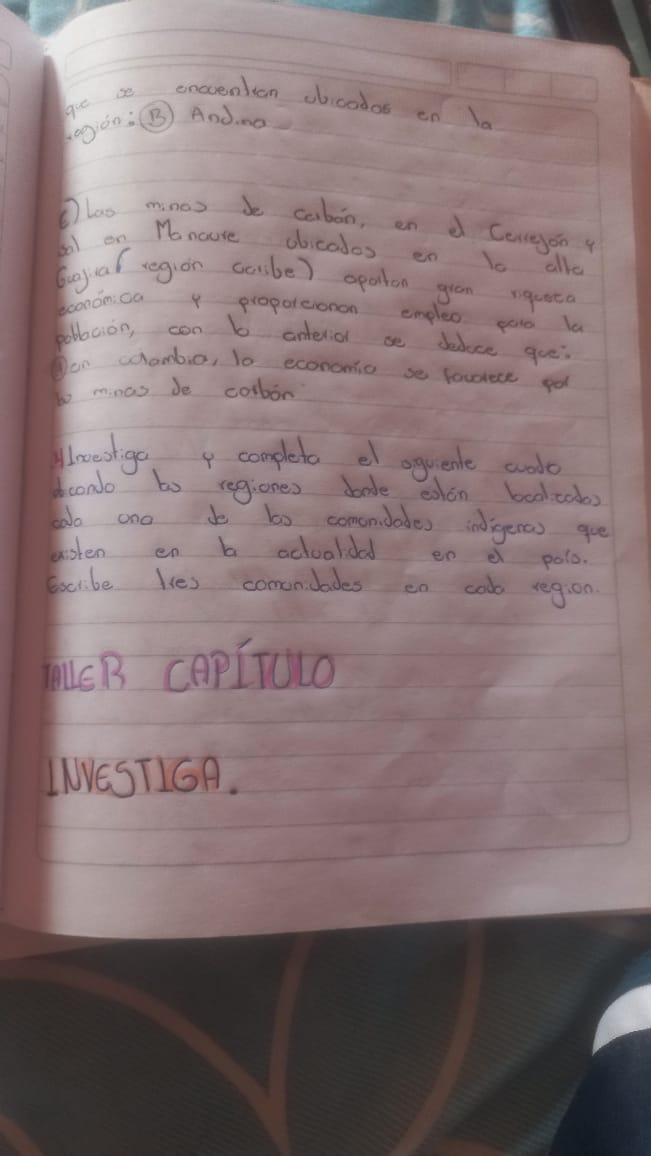 que se encuentran ubicados en la
región: B) Andina
6) Las minas de carbón, en el Cerrejón y
sal en Manaure ubicados en la alta
Guajira (región caribe) aportan gran riqueza
económica y proporcionan empleo para la
población, con lo anterior se deduce que:
en colombia, la economía se favorece por
las minas de carbón
Investiga y completa el siguiente cuadro
ubicando las regiones donde están localizados
cada una de las comunidades indígenas que
existen en la actualidad en el país.
Escribe tres comunidades en cada region.
TALLER CAPÍTULO
INVESTIGA.